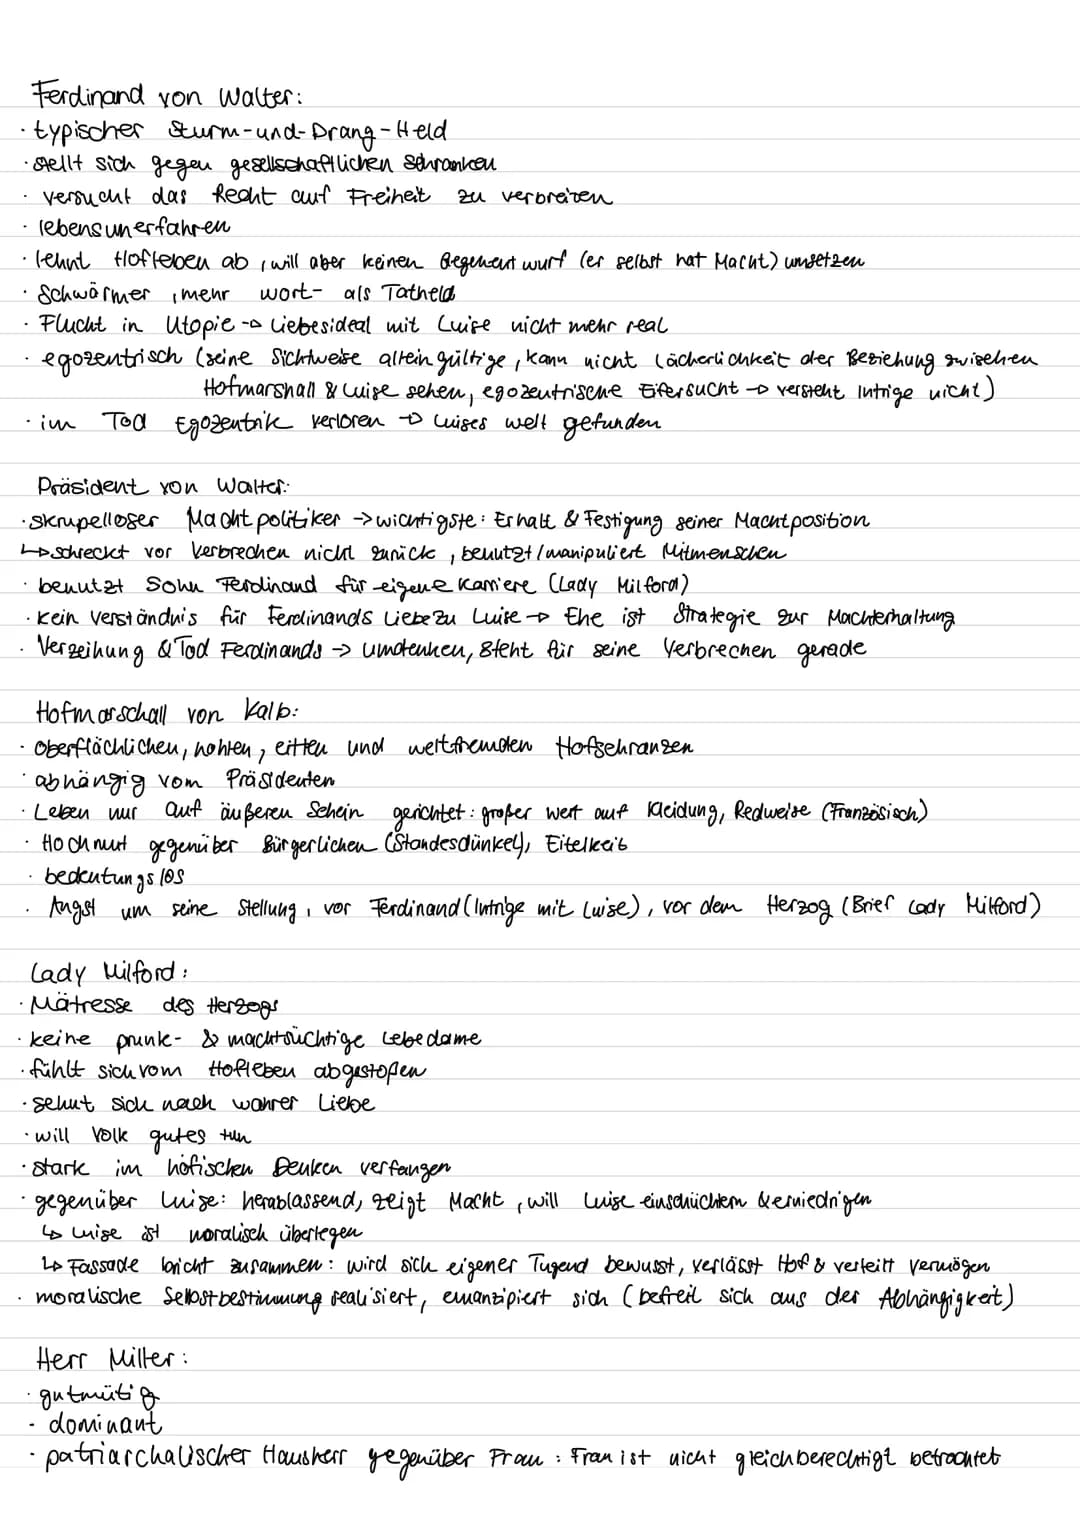 Ferdinand von Walter:
· typischer Sturm-und-Drang-Held
· stellt sich gegen gesellschaftlichen Schranken
· versucht das Recht auf Freiheit zu verbreiten
· lebensunerfahren
· lehnt Hofleben ab, will aber keinen Gegenentwurf (er selbst hat Macht) umsetzen
· Schwärmer, mehr Wort- als Tatheld
· Flucht in Utopie → Liebesideal mit Luise nicht mehr real
· egozentrisch (seine Sichtweise alleingültige, kann nicht Lächerlichkeit der Beziehung zwischen
Hofmarshall & Luise sehen, egozentrische Eifersucht → versteht Intrige nicht)
· im Tod Egozentrik verloren → Luises Welt gefunden
Präsident von Walter:
· skrupelloser Machtpolitiker → wichtigste: Erhalt & Festigung seiner Machtposition
↳ schreckt vor Verbrechen nicht zurück, benutzt/manipuliert Mitmenschen
· benutzt Sohn Ferdinand für eigene Karriere (Lady Milford)
· kein Verständnis für Ferdinands Liebe zu Luise → Ehe ist Strategie zur Machterhaltung
· Verzeihung & Tod Ferdinands → Umdenken, steht für seine Verbrechen gerade
Hofmarschall von Kalb:
· oberflächlichen, hohlen, eitlen und weltfremden Hofschranzen
· abhängig vom Präsidenten
· Leben nur auf äußeren Schein gerichtet: großer Wert auf Kleidung, Redweise (Französisch)
· Hochmut gegenüber Bürgerlichen (Standesdünkel), Eitelkeit
· bedeutungslos
· Angst um seine Stellung, vor Ferdinand (Intrige mit Luise), vor dem Herzog (Brief Lady Milford)
Lady Milford:
· Mätresse des Herzogs
· keine prunk- & machtsüchtige Lebedame
· fühlt sich vom Hofleben abgestoßen
· sehnt sich nach wahrer Liebe
· will Volk gutes tun
· stark im höfischen Denken verfangen
· gegenüber Luise: herablassend, zeigt Macht, will Luise einschüchtern & erniedrigen
↳ Luise ist moralisch überlegen
↳ Fassade bricht zusammen: wird sich eigener Tugend bewusst, verlässt Hof & verteilt Vermögen
· moralische Selbstbestimmung realisiert, emanzipiert sich (befreit sich aus der Abhängigkeit)
Herr Miller:
· gutmütig
· dominant
· patriarchalischer Hausherr gegenüber Frau: Frau ist nicht gleichberechtigt betrachtet